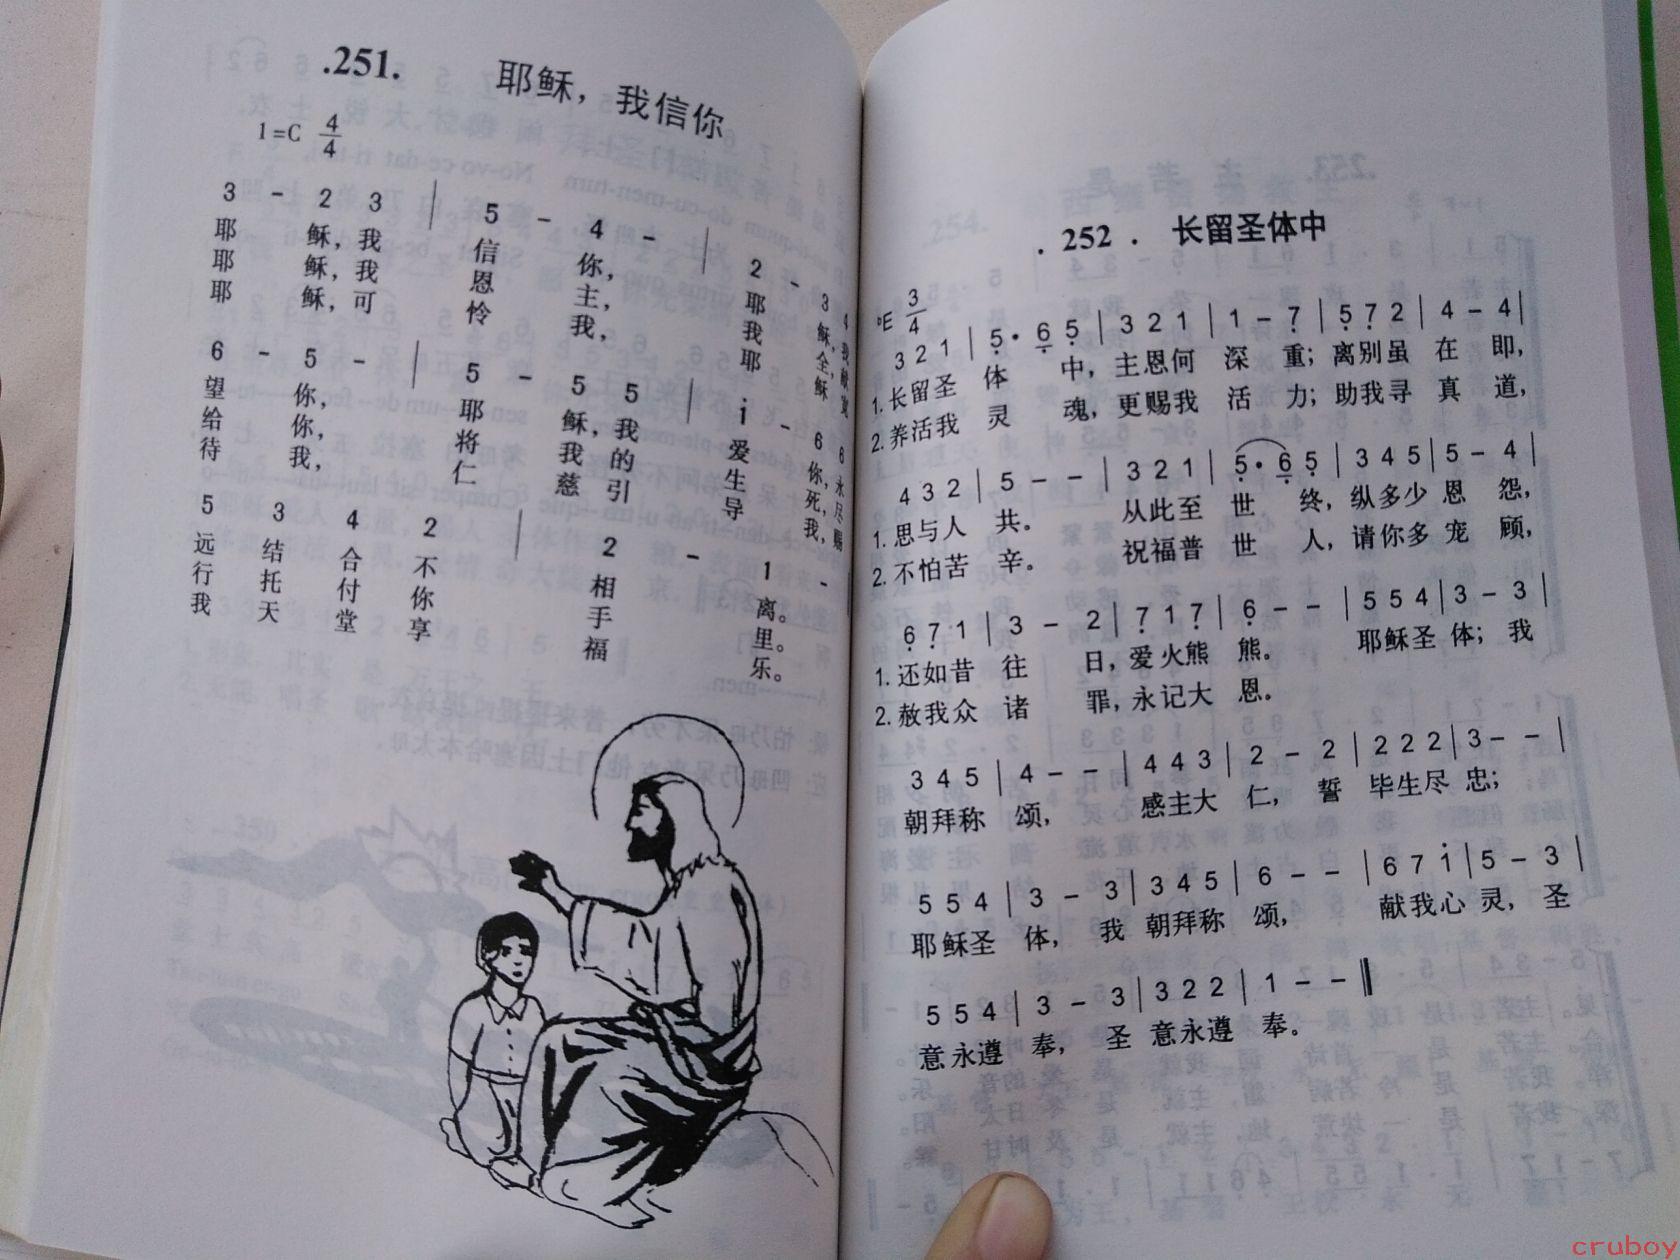 .251. 耶稣，我信你
1=C 4/4
3 - 2 3 | 5 - 4 - | 2 - 3 4
耶 稣，我 信 你， 耶 稣，我
耶 稣，我 恩 主， 我 全 献
耶 稣，可 怜 我， 耶 稣 宽
6 - 5 - | 5 - 5 5 | i - 6 6
望 你， 耶 稣，我 爱 你，永
给 你， 将 我 的 生 死，尽
待 我， 仁 慈 引 导 我，赐
5 3 4 2 | 2 - 1 -
远 结 合 不 相 离。
行 托 付 你 手 里。
我 天 堂 享 福 乐。
.252. 长留圣体中
ᵇE 3/4
3 2 1 | 5· 6 5 | 3 2 1 | 1 - 7 | 5 7 2 | 4 - 4 |
1.长留圣 体 中，主恩何 深 重；离别虽 在 即，
2.养活我 灵 魂，更赐我 活 力；助我寻 真 道，
4 3 2 | 5 - - | 3 2 1 | 5· 6 5 | 3 4 5 | 5 - 4 |
1.思与人 共。 从此至 世 终，纵多少 恩 怨，
2.不怕苦 辛。 祝福普 世 人，请你多 宠 顾，
6 7 1 | 3 - 2 | 7 1 7 | 6 - - | 5 5 4 | 3 - 3 |
1.还如昔 往 日，爱火熊 熊。 耶稣圣 体；我
2.赦我众 诸 罪，永记大 恩。
3 4 5 | 4 - - | 4 4 3 | 2 - 2 | 2 2 2 | 3 - - |
朝拜称 颂， 感主大 仁，誓 毕生尽 忠；
5 5 4 | 3 - 3 | 3 4 5 | 6 - - | 6 7 i | 5 - 3 |
耶稣圣 体，我 朝拜称 颂， 献我心 灵，圣
5 5 4 | 3 - 3 | 3 2 2 | 1 - - ‖
意永遵 奉，圣 意永遵 奉。
cruboy